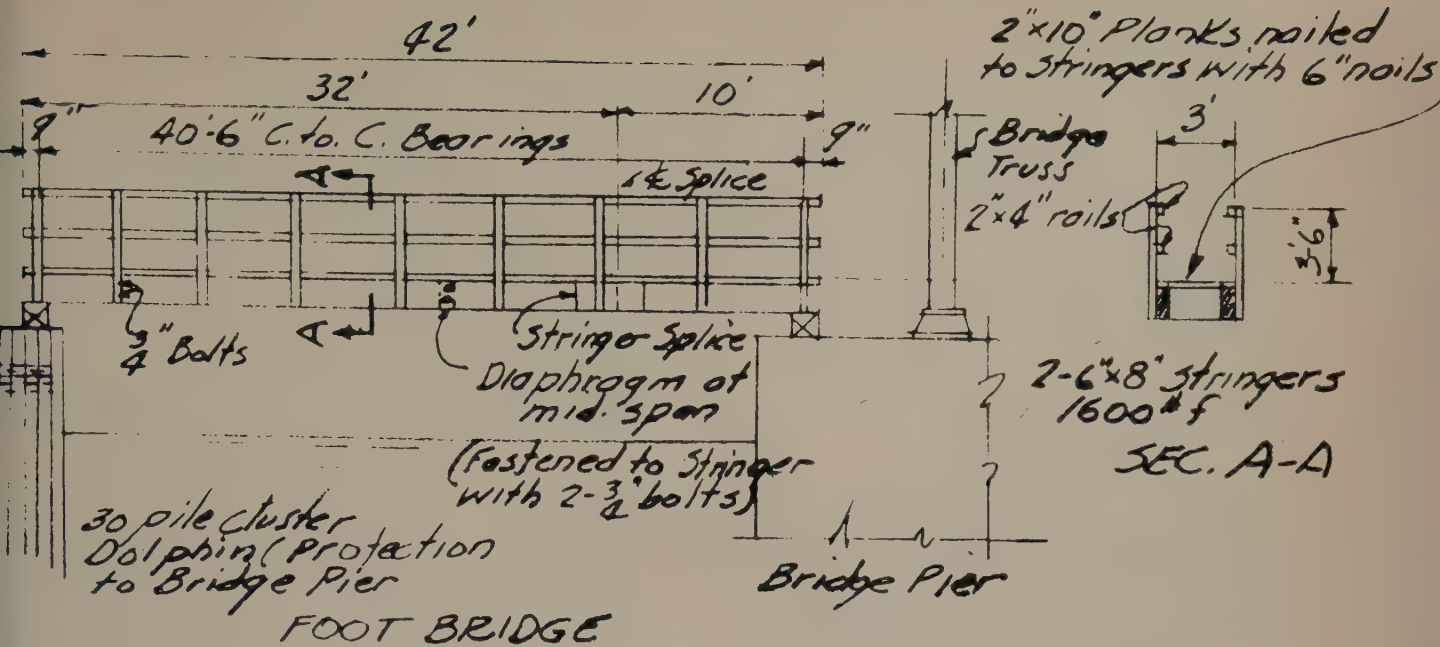 42'
32'
10'
9"
40'-6" C. to. C. Bearings
9"
A
℄ Splice
A
3/4" Bolts
Stringer Splice
Diaphragm at
mid. span
(Fastened to Stringer
with 2-3/4" bolts)
30 pile cluster
Dolphin (Protection
to Bridge Pier
FOOT BRIDGE
Bridge
Truss
2"x4" rails
Bridge Pier
2"x10" Planks nailed
to Stringers with 6" nails
3'
3'-6"
2-6"x8" Stringers
1600 # f
SEC. A-A